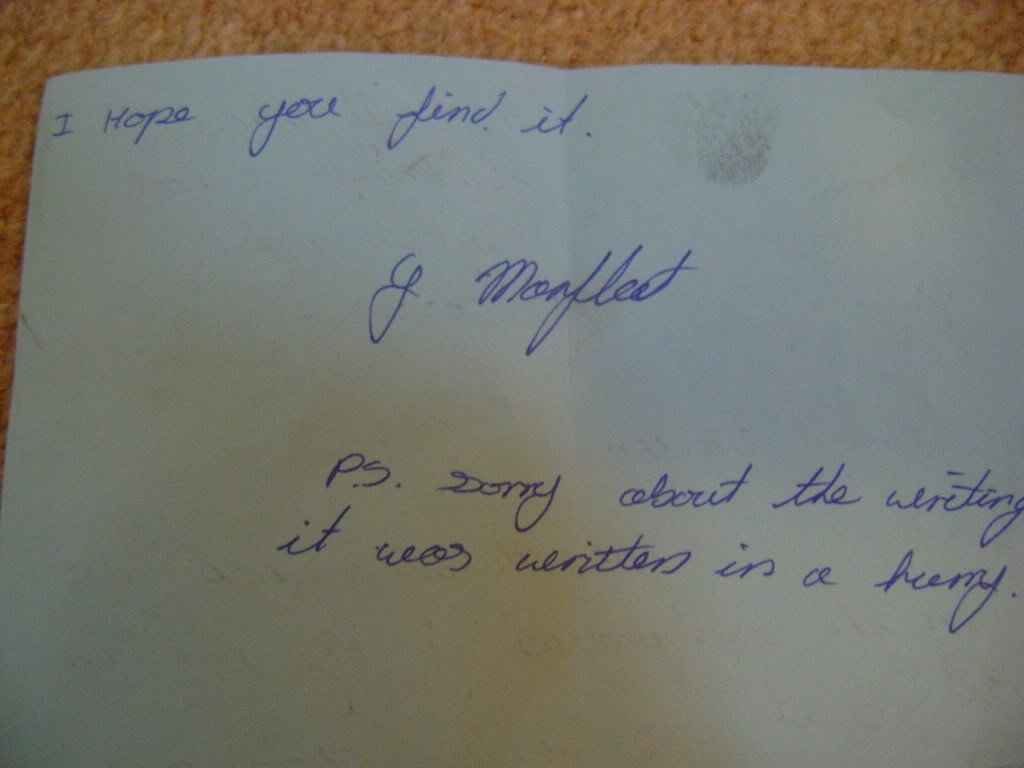 I Hope you find it.
J Manfleet
P.S. Sorry about the writing
it was written in a hurry.